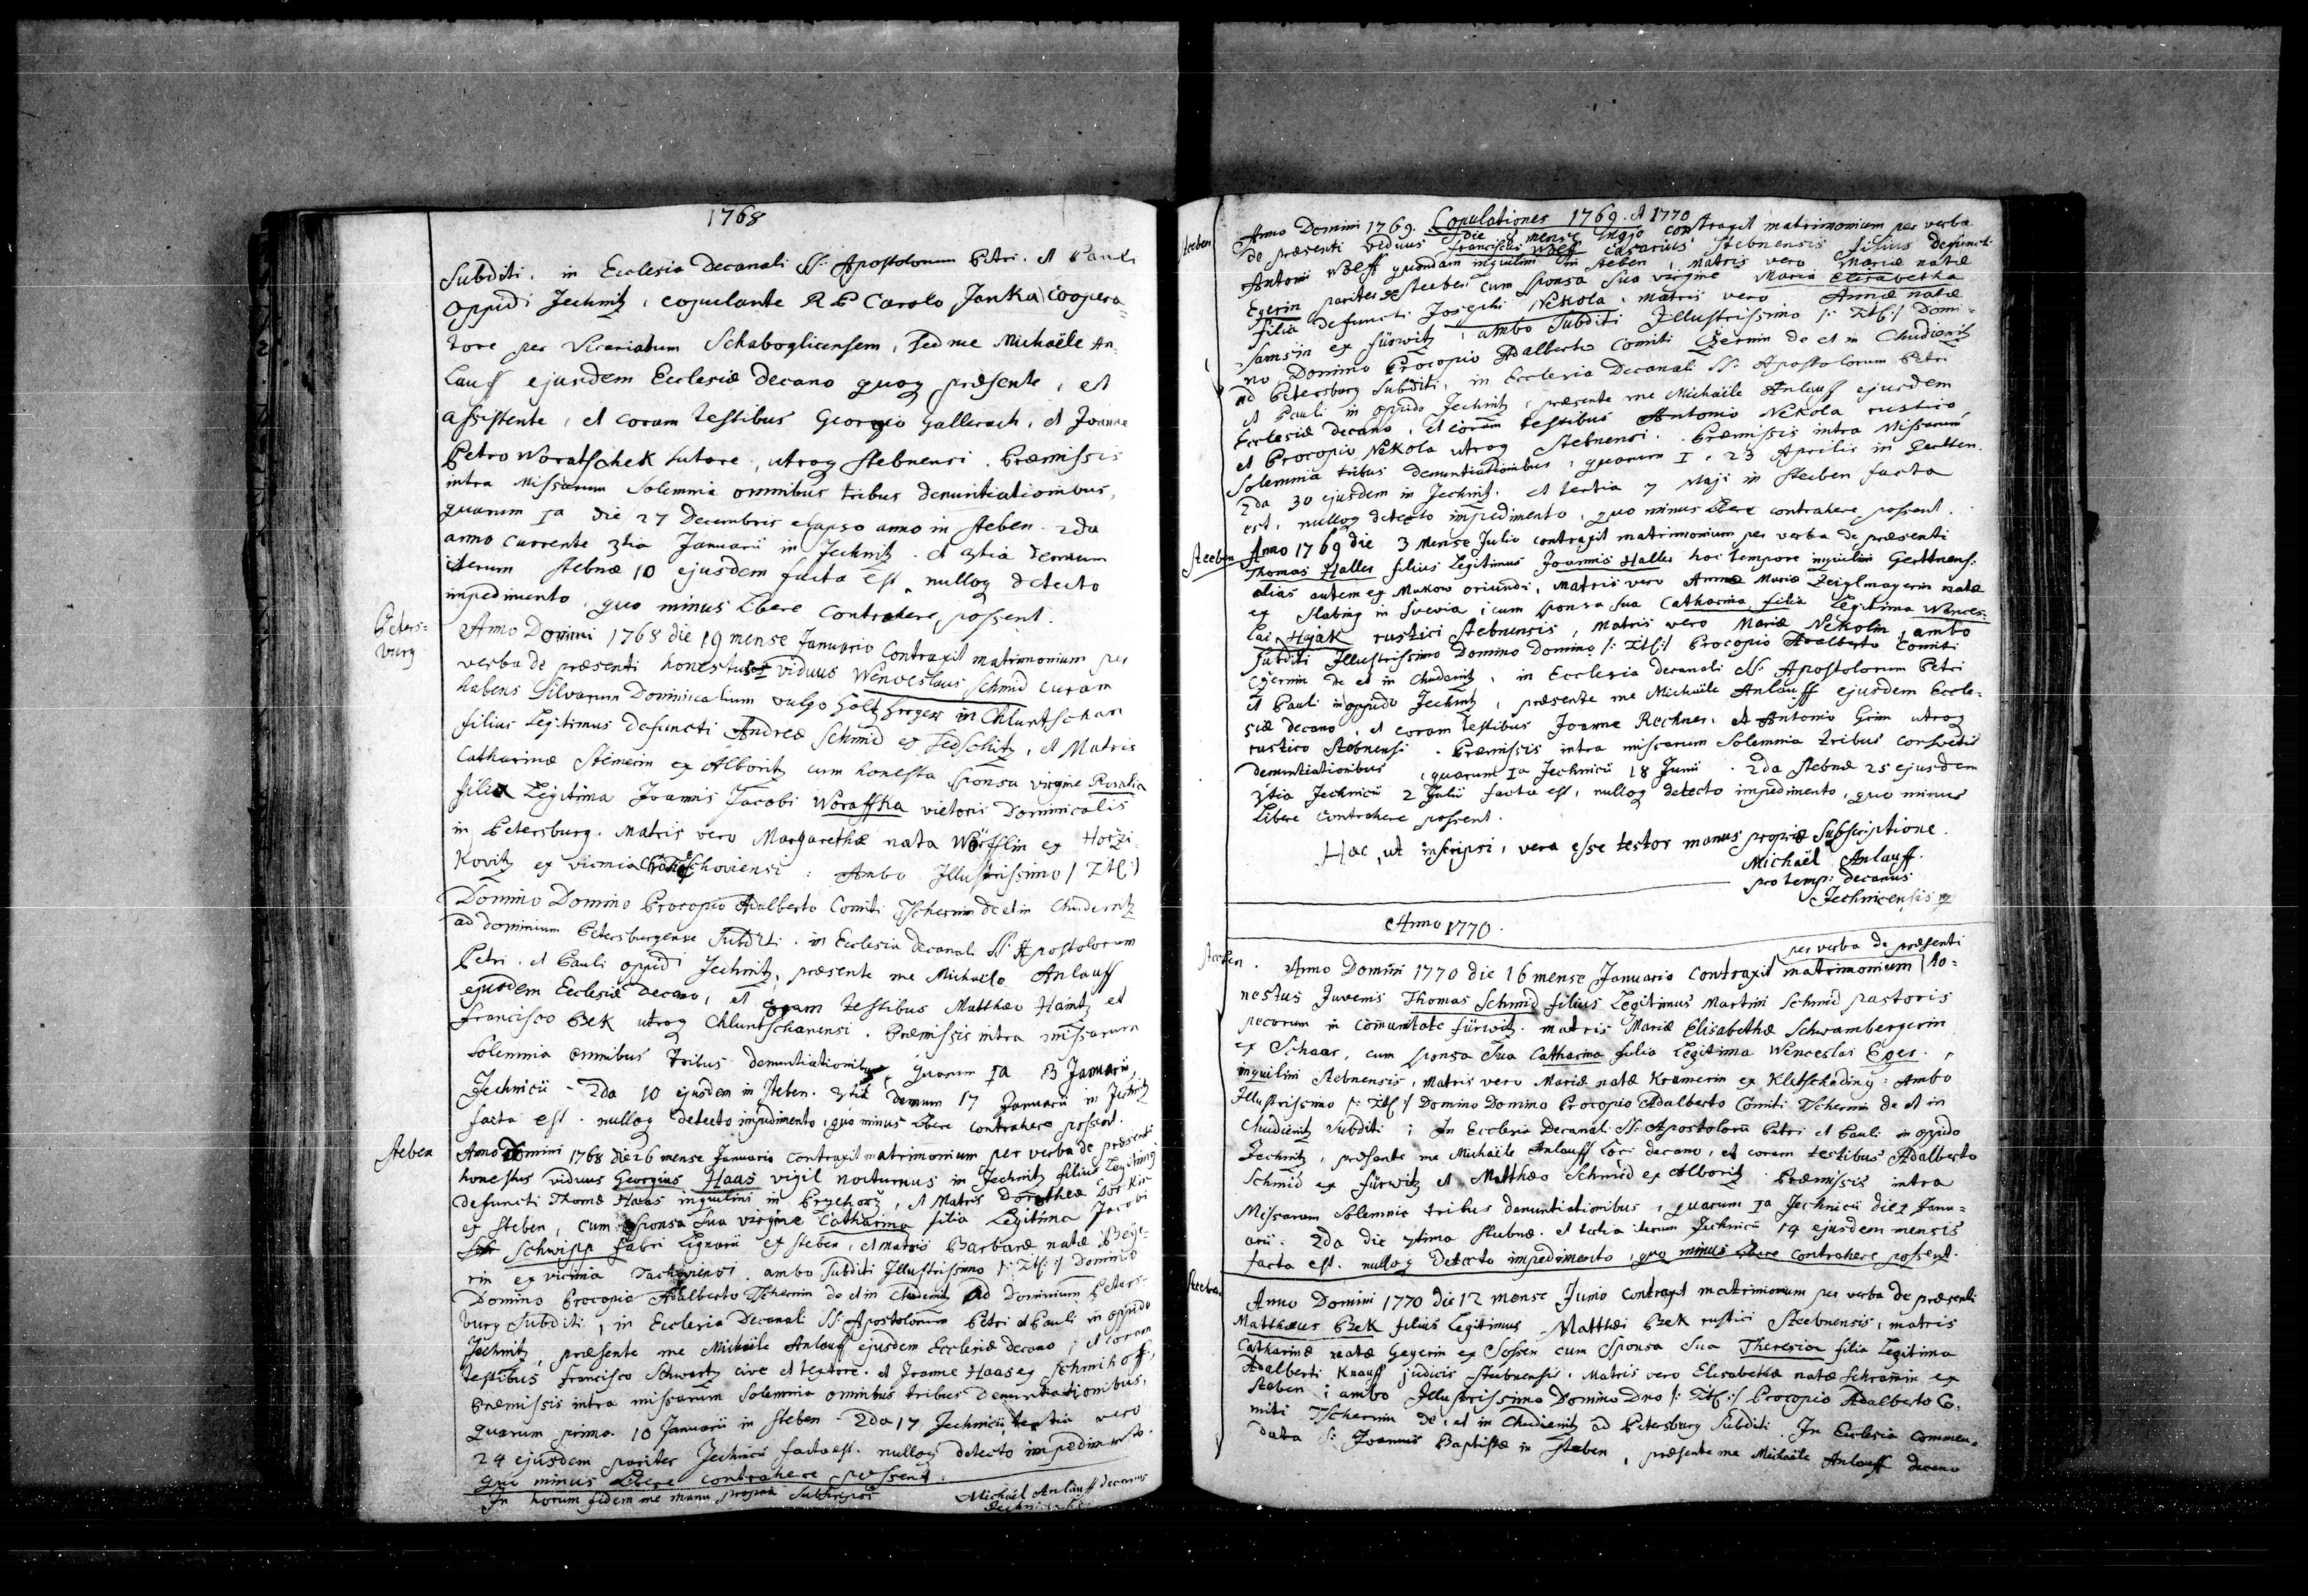 1768
Subditi. in Ecclesia Decanali SS: Apostolorum Petri. et Pauli
oppidi Jechnitz, copulante R P Carolo Janka Coopera=
tore per Vicariatum Schaboglicensem, Sed me Michaële An=
lauff ejusdem Ecclesiæ decano quoq præsente, et
assistente, et coram testibus Georgio Gallerach, et Joanne
Petro Woratschek sutore, utroq Stebnensi. Præmissis
intra Missarum Solemnia omnibus tribus denuntiationibus,
quarum Ia die 27 Decembris elapso anno in Steben. 2da
anno currente 3tia Januarii in Jechnitz. et 3tia demum
iterum Stebnæ 10 ejusdem facta est, nulloq detecto
impedimento, quo minus libere contrahere possent.
Peters=
burg
Anno Domini 1768 die 19 mense Januario Contraxit matrimonium per
verba de præsenti honestus viduus Wenceslaus Schmid curam
habens Silvarum Dominicalium vulgo in Chluntschan
filius Legitimus defuncti Andreæ Schmid ex Sedschitz, et Matris
Catharinæ Steinerin ex Alboritz cum honesta Sponsa virgine Rosalia
filia Legitima Joannis Jacobi Woraffka vietoris Dominicalis
in Petersburg. Matris vero Margarethæ nata Wörfflin ex Horzi=
kovitz ex vicinia : Ambo Illustrissimo / Titl:)
Domino Domino Procopio Adalberto Comiti Tschernin de et in Chudenitz
ad dominium Petersburgense Subditi. in Ecclesia decanali SS: Apostolorum
Petri. et Pauli oppidi Jechnitz, præsente me Michaële Anlauff
ejusdem Ecclesiæ Decano, et coram testibus Matthæo Haintz et
Francisco Bek utroq Chluntschanensi. Præmissis intra missarum
Solemnia omnibus tribus denuntiationibus, quarum Ia 3 Januarii,
Jechnicii - 2da 10 ejusdem in Steben. 3tia demum 17 Januarii in Jechnitz
facta est. nulloq detecto impedimento, quo minus libere contrahere possent.
Steben
Anno Domini 1768 die 26 mense Januario Contraxit matrimonium per verba de præsenti
honestus viduus Georgius Haas vigil nocturnus in Jechnitz filius Legitimus
defuncti Thomæ Haas inquilini in, et Matris Dorotheæ
ex Steben, cum Sponsa Sua virgine Catharina filia Legitima Jacobi
Schwipp fabri Lignarii ex Steben, et matris Barbaræ natæ Beye=
rin ex vicinia. ambo Subditi Illustrissimo /: Titl: :/ Domino
Domino Procopio Adalberto Tschernin de et in Chudenitz ad Dominium Peters=
burg Subditi, in Ecclesia Decanali SS: Apostolorum Petri et Pauli in oppido
Jechnitz, præsente me Michaële Anlauff ejusdem Ecclesiæ decano, et coram
testibus Francisco Schwartz cive et textore. et Joanne Haas ex Schmihoff,
Præmissis intra missarum Solemnia omnibus tribus denuntiationibus,
quarum prima 10 Januarii in Steben - 2da 17 Jechnicii, tertia vero
24 ejusdem pariter Jechnicii facta est. nulloq detecto impedimento.
quo minus libere contrahere possent.
In horum fidem me manu propria Subscripsi Michaël Anlauff decanus
Copulationes 1769. et 1770
Steben
Anno Domini 1769. die mense Majo contraxit matrimonium per verba
de præsenti viduus Franciscus Wolff casarius Stebnensis filius defuncti
Antonii Wolff quondam inquilini in Steben, Matris vero Mariæ natæ
Egerin pariter ex Steeben cum Sponsa Sua virgine Maria Elisabetha
filia defuncti Josephi Nekola, matris vero Annæ natæ
Samsin ex Fürwitz, ambo Subditi Illustrissimo /: Titl: :/ Domi=
no Domino Procopio Adalberto Comiti Czernin de et in Chudienitz
ad Petersburg Subditi, in Ecclesia Decanali SS: Apostolorum Petri
et Pauli in oppido Jechnitz, præsente me Michaële Anlauff ejusdem
Ecclesiæ decano, et coram testibus Antonio Nekola rustico,
et Procopio Nekola utroq Stebnensi. Præmissis intra Missarum
Solemnia tribus denuntiationibus, quarum I. 23 Aprilis in Gertten.
2da 30 ejusdem in Jechnitz. et tertia 7 Maji in Steeben facta
est, nulloq detecto impedimento, quo minus libere contrahere possent.
Steeben
Anno 1769 die 3 Mense Julio contraxit matrimonium per verba de præsenti
Thomas Haller filius Legitimus Joannis Haller hoc tempore inquilini Gerttnens:
alias autem ex Mukow oriundi, Matris vero Annæ Mariæ Zeiglmayerin natæ
ex Slabing in Suevia, cum sponsa Sua Catharina filia Legitima Wences=
lai Hajak rustici Stebnensis, Matris vero Mariæ Nekolin, ambo
Subditi Illustrissimo Domino Domino /: Titl: :/ Procopio Adalberto Comiti
Czernin de et in Chudenitz, in Ecclesia decanali SS: Apostolorum Petri
et Pauli in oppido Jechnitz, præsente me Michaële Anlauff ejusdem Eccle=
siæ decano, et coram testibus Joanne Rechner, et Antonio Grim utroq
rustico Stebnensi. Præmissis intra missarum Solemnia tribus consuetis
denuntiationibus, quarum Ia Jechnicii 18 Junii. 2da Stebnæ 25 ejusdem
3tia Jechnicii 2 Julii facta est, nulloq detecto impedimento, quo minus
Libere contrahere possent.
Hæc, ut inscripsi, vera esse testor manus propriæ Subscriptione.
Michaël Anlauff.
pro temp: decanus
Jechnicensis
Anno 1770.
Steeben.
Anno Domini 1770 die 16 mense Januario Contraxit per verba de præsenti matrimonium ho=
nestus Juvenis Thomas Schmid filius Legitimus Martini Schmid pastoris
pecorum in Comunitate Fürwitz. matris Mariæ Elisabethæ Schwambergerin
ex Schaar, cum sponsa Sua Catharina filia Legitima Wenceslai Eger.,
inquilini Stebnensis, Matris vero Mariæ natæ Kramerin ex Kletscheding: Ambo
Illustrissimo /: Titl: :/ Domino Domino Procopio Adalberto Comiti Tschernin de et in
Chudienitz Subditi; In Ecclesia Decanali SS: Apostolorū Petri et Pauli in oppido
Jechnitz, præsente me Michaële Anlauff Loci decano, et coram testibus Adalberto
Schmid ex Fürwitz et Matthæo Schmid ex Alboritz. Præmissis intra
Missarum Solemnia tribus denuntiationibus, quarum Ia Jechnicii die 1 Janu=
arii. 2da die 7tima Stebnæ. et tertia iterum Jechnicii 14 ejusdem mensis
facta est. nulloq detecto impedimento, quo minus libere contrahere possent.
Steeben
Anno Domini 1770 die 12 mense Junio Contraxit matrimonium per verba de præsenti
Matthæus Bek filius Legitimus Matthæi Bek rustici Steebnensis, matris
Catharinæ natæ Geyerin ex Sossen cum Sponsa Sua Theresia filia Legitima
Adalberti Knauff judicis Stebnensis. Matris vero Elisabethæ natæ Schramin ex
Steben; ambo Illustrissimo Domino Dno /: Titl: :/ Procopio Adalberto Co=
miti Tschernin de, et in Chudienitz ad Petersburg Subditi. In Ecclesia Commen=
data S: Joannis Baptistæ in Steben, præsente me Michaële Anlauff decano